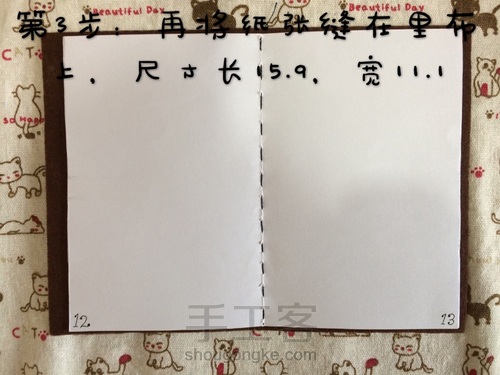 Beautiful Day
Beautiful Day
第3步：再将纸张缝在里布
上，尺寸长15.9，宽11.1
CAT
So Happy
CAT
12
13
手工客
shougongke.com
CAT